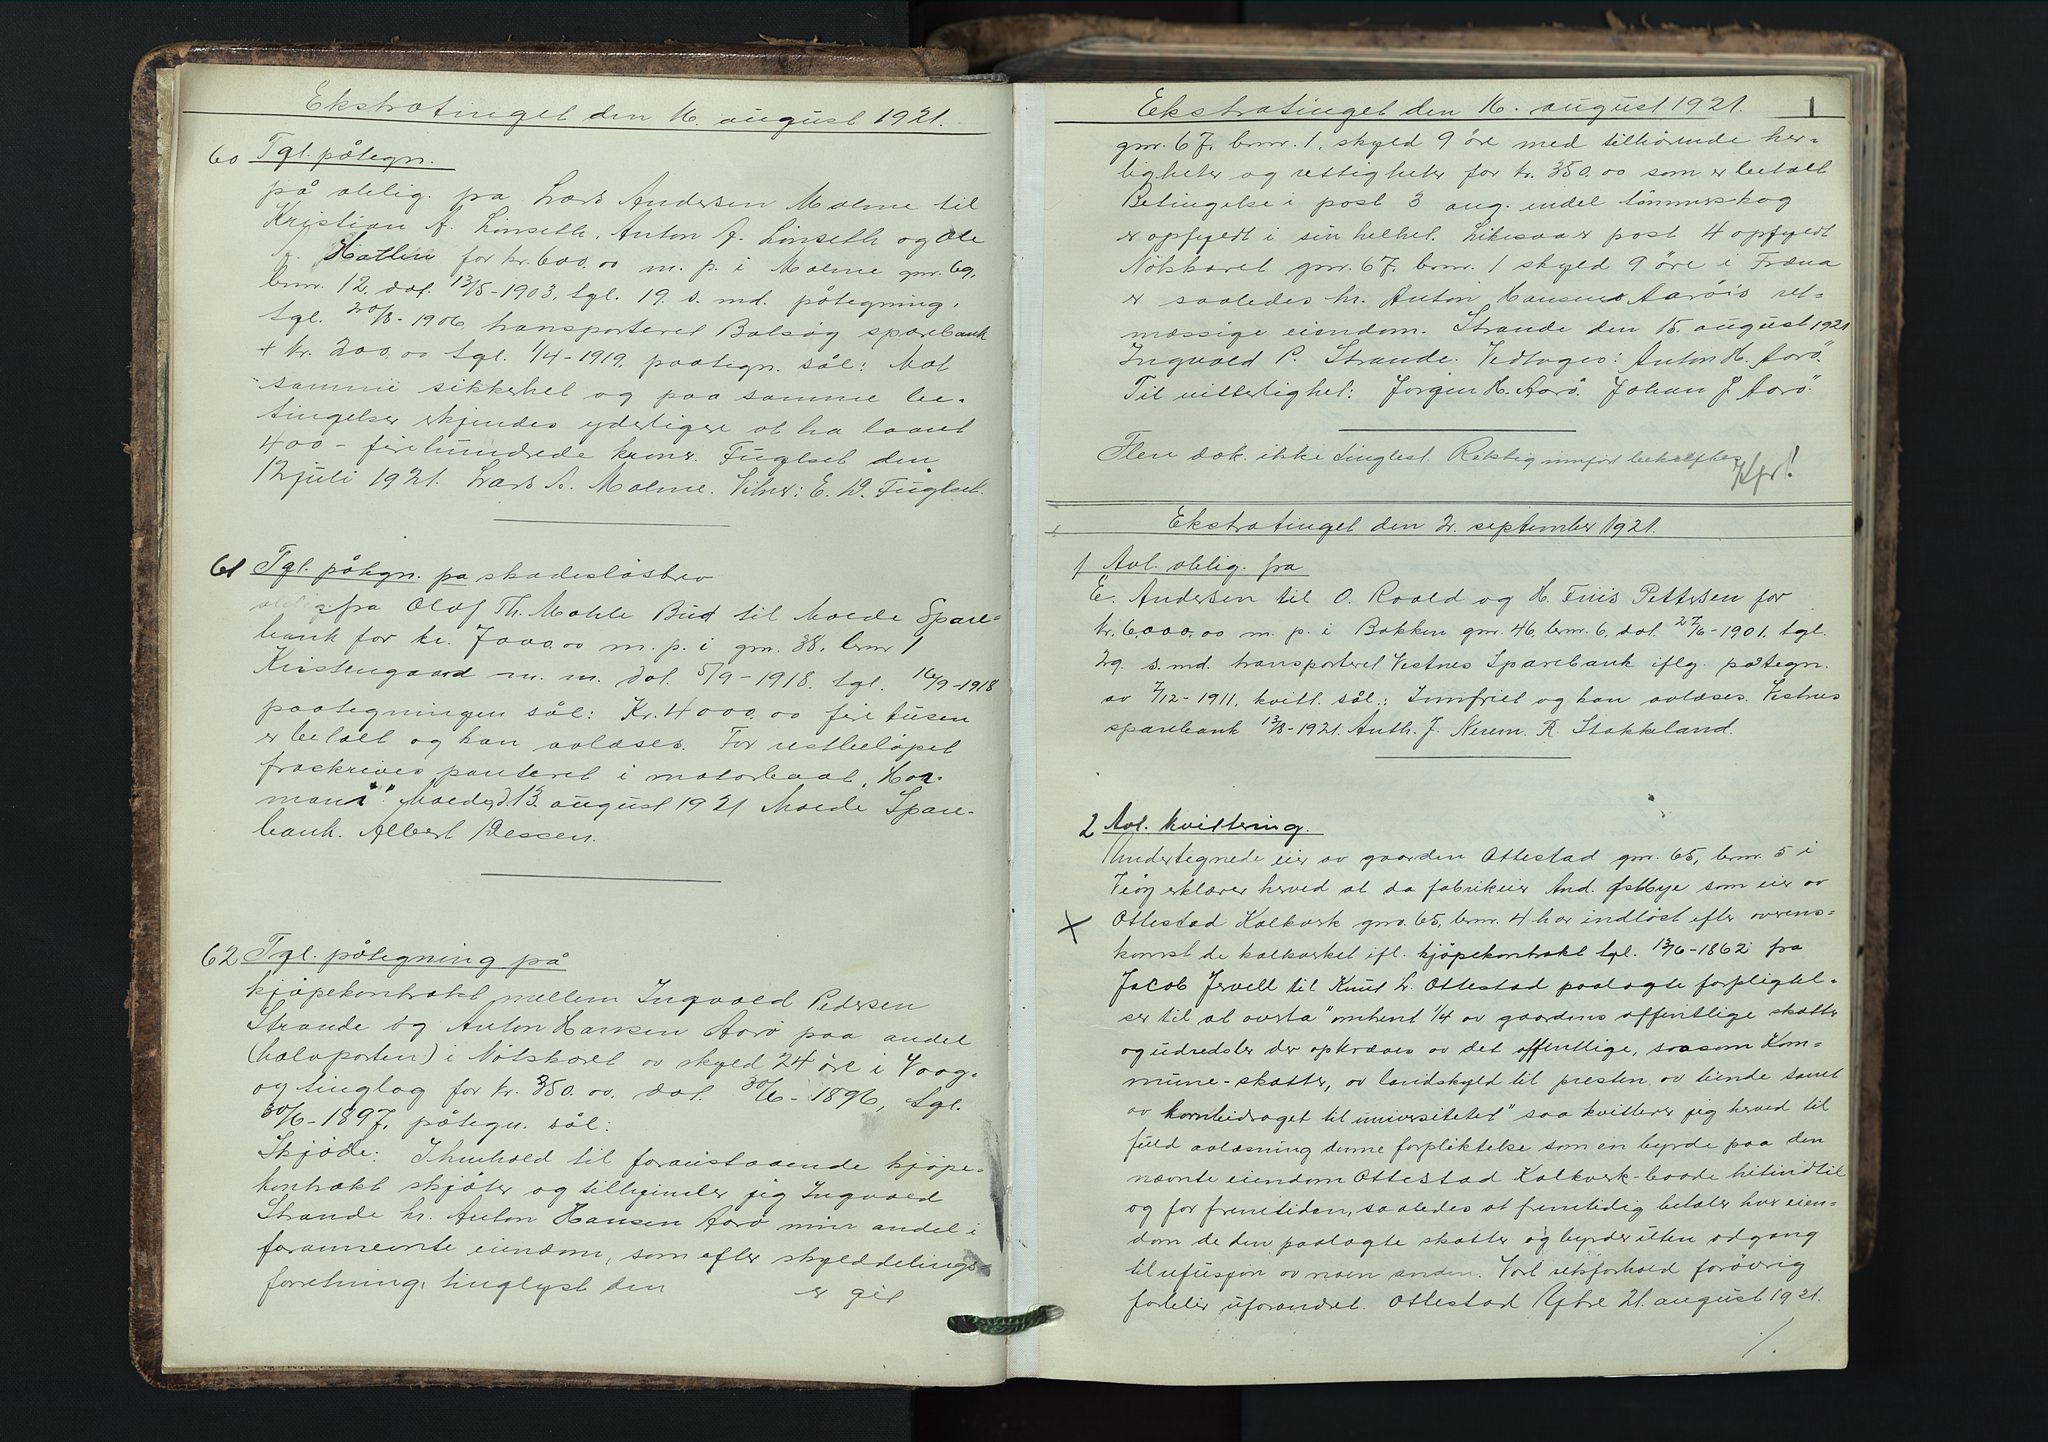 Ekstratinget den 16. august 1921.
60 Tgl. påtegn.
på oblig. fra Lars Andersen Malme til
Kristian A. Lönseth, Anton A. Lönseth og Ole
A. Hatlen for kr. 600,00 m. p. i Malme gnr. 69,
bnr. 12, dat. 13/5-1903, tgl. 19. s. md. påtegning,
tgl. 20/8-1906 transporteret Bolsøy sparebank
+ kr. 200,00 tgl. 1/4-1919, paategn. sål: Mot
samme sikkerhet og paa samme be-
tingelser erkjendes yderligere at ha laant
400 - firehundrede kroner. Fuglset den
12 juli 1921. Lars A. Malme. Vitner: E. D. Fuglset.
61 Tgl. påtegn. pa skadesløsbrev
fra Olof Th. Mahle Bud til Molde Spare-
bank for kr. 7000,00 m. p. i gnr. 38, bnr 1
Kirstengaard m. m. dat. 5/9-1918. tgl. 16/9-1918
paategningen sål: Kr. 4000,00 fire tusen
er betalt og kan avlæses. For restbeløpet
fraskrives panteret i motorbaat „Har-
mani". Molde, d. 13. august 1921 Molde Spare-
bank. Albert Dessen.
62 Tgl. påtegning på
kjøpekontrakt mellem Ingvald Pedersen
Strande og Anton Hansen Aarø paa andel
(halvparten) i Nøtskaret av skyld 24 øre i Vaag-
øy tinglag for kr. 350,00, dat. 30/6-1896, tgl.
30/6-1897, påtegn. sål:
Skjøde: I henhold til foranstaaende kjøpe-
kontrakt skjøter og tilhjemler jeg Ingvald
Strande hr. Anton Hansen Aarø min andel i
forannevnte eiendom, som efter skylddelings-
forretning, tinglyst den er git
Ekstratinget den 16. august 1921. 1
gnr. 67, bnr. 1, skyld 9 øre med tilhørende her-
ligheter og rettigheter for kr. 350,00 som er betalt
Betingelse i post 3 ang. endel tømmerskog
er opfyldt i sin helhet. Likesaa er post 4 opfyldt
Nøtskaret gnr. 67, bnr. 1 skyld 9 øre i Fræna
er saaledes hr. Anton Hansens Aarøis ret-
mæssige eiendom. Strande den 15. august 1921
Ingvald P. Strande. Vedtages: Anton H. Aarø.
Til vitterlighet: Jørgen H. Aarø. Johan J. Aarø.
Flere dok. ikke tinglest. Riktig innført bekræftes
Kfr!
Ekstratinget den 2. september 1921.
1 Avl. oblig. fra
E. Andersen til O. Roald og H. Friis Pettersen for
kr. 6.000,00 m. p. i Bakken gnr. 46, bnr. 6, dat. 27/6-1901, tgl.
29. s. md. transporteret Vestnes Sparebank iflg. påtegn.
av 7/12-1911, kvitt. sål.: Innfriet og kan avlæses. Vestnes
sparebank 13/8-1921. Anth. J. Nerem. R. Stokkeland.
2 Avl. kvittering.
Undertegnede eier av gaarden Ottestad gnr. 65, bnr. 5 i
Veøy erklærer herved at da fabrikeier And. Østbye som eier av
Ottestad Kalkverk gnr. 65, bnr. 4 har indløst efter overens-
komst de kalkverket ifl. kjøpekontrakt tgl. 13/6-1862 fra
Jacob Jervell til Knut L. Ottestad paalagte forpligtel-
ser til at avsta "omhent 1/4 av gaardens offentlige skatter
og udredsler der opkræves av det offentlige, saasom Kom-
mune-skatter, av landskyld til presten av tiende samt
av kornbidraget til universitetet" saa kvitterer jeg herved til
fuld avlæsning denne forpliktelse som en byrde paa den
nævnte eiendom Ottestad Kalkverk-baade hitindtil
og for fremtiden, saaledes at fremtidig betaler hver eien-
dom de den paalagte skatter og byrder uten adgang
til refusjon av noen anden. Vort retsforhold forøvrig
forbler uforandret. Ottestad Ytre 21. august 1921.
/.